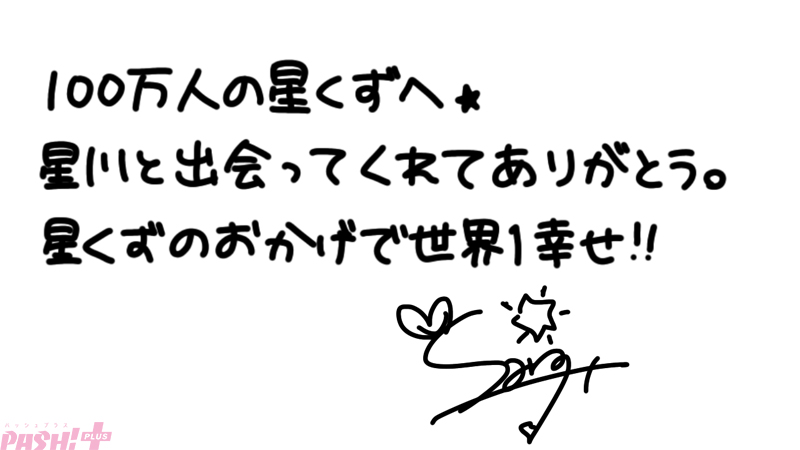 100万人の星くずへ★
星川と出会ってくれてありがとう。
星くずのおかげで世界1幸せ!!
パッシュプラス
PASH! PLUS